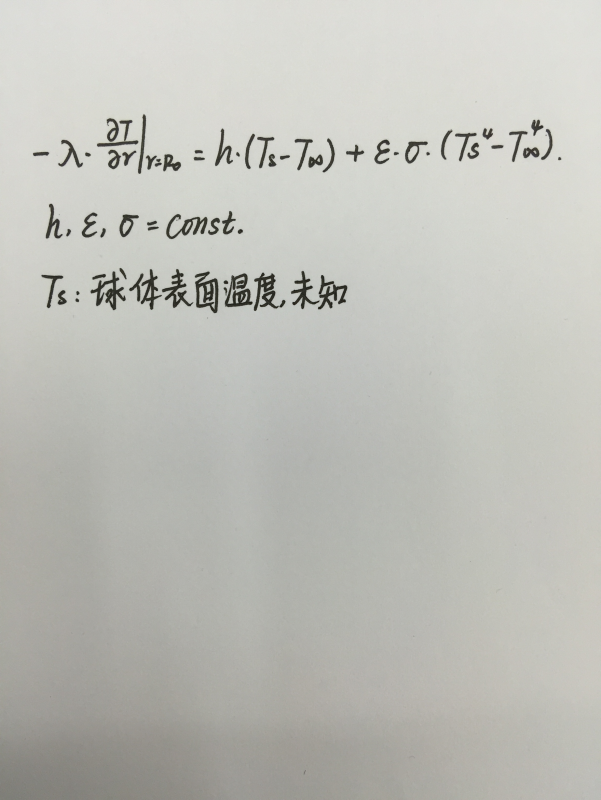 -λ·∂T/∂r|r=R₀ = h·(Ts-T∞) + ε·σ·(Ts⁴-T∞⁴).
h, ε, σ = const.
Ts: 球体表面温度,未知